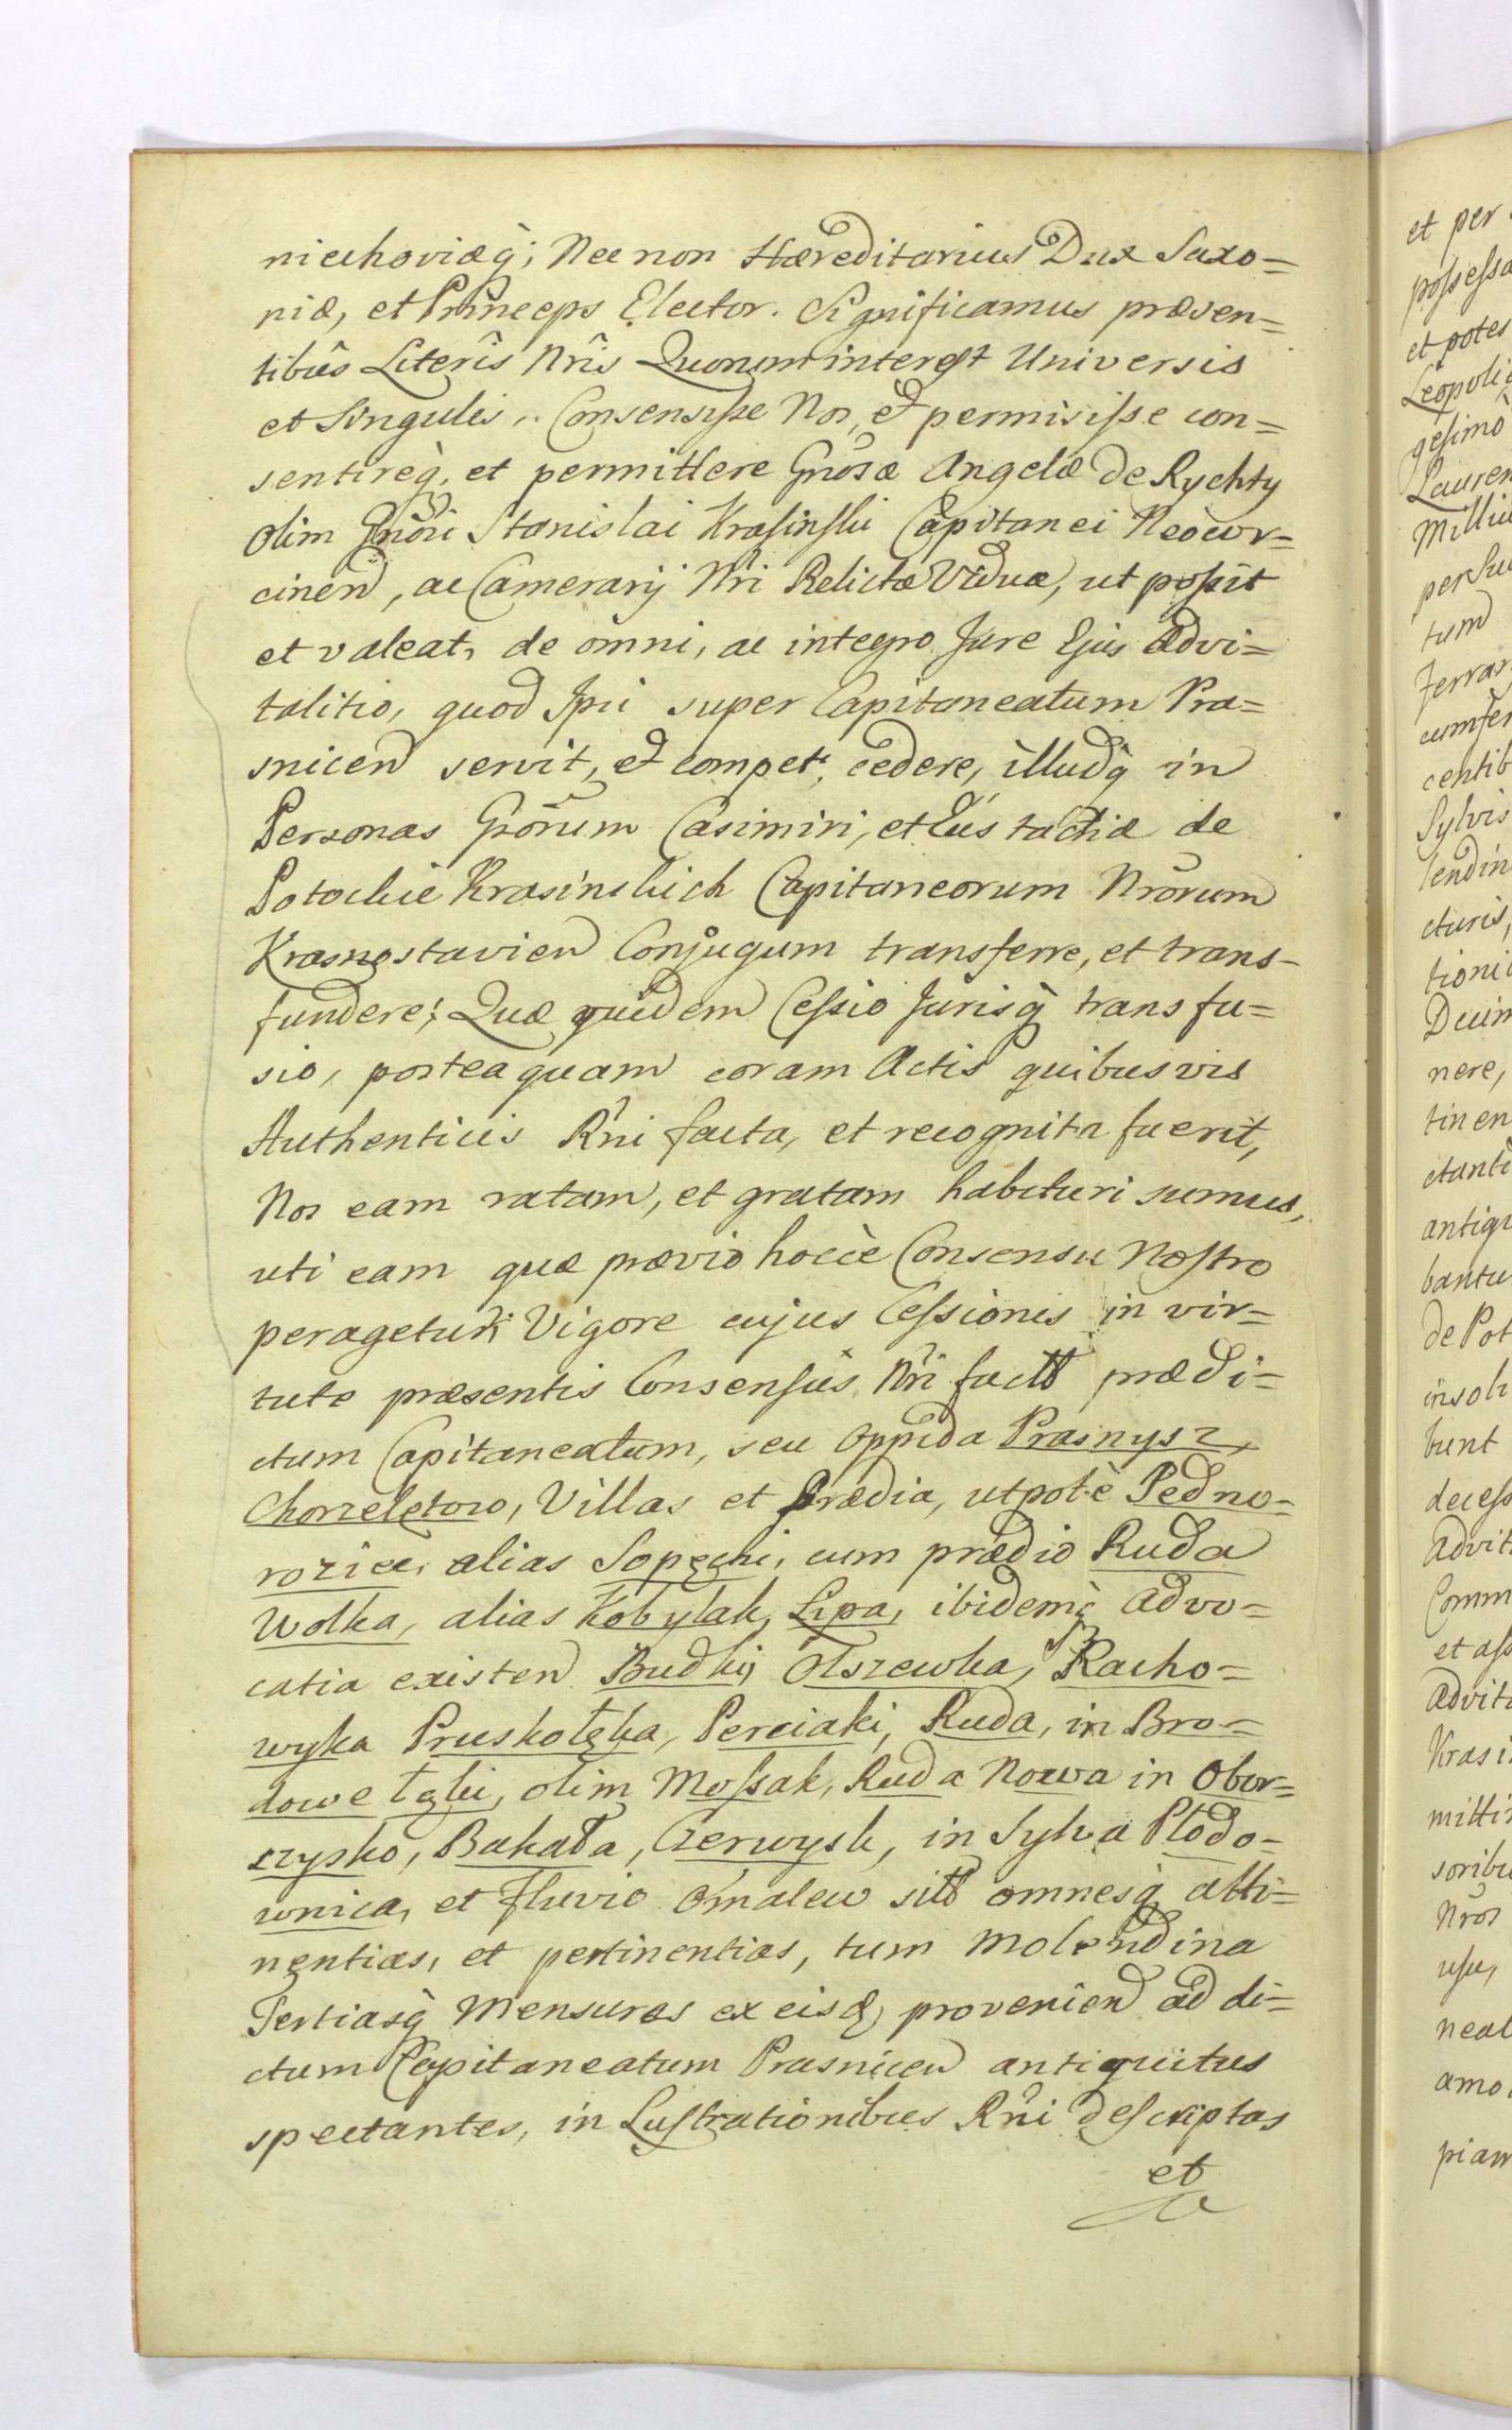 niechoviæq̀; Nec non Hæreditarius Dux Saxo=
niæ, et Princeps Elector. Significamus præsen=
tibûs Literîs Nrîs Quorum interest Universis
et Singulis. Consensisse Nos, et permisisse con=
sentireq̀, et permittere Gnosæ Angelæ de Rychty
olim Gnosi Stanislai Krasinski Capitanei Neocor=
cinen, ac Camerarij Nri Relictæ Viduæ, ut possit
et valeat, de omni, ac integro Jure Ejus Advi=
talitio, quod Ipsi super Capitaneatum Pra=
snicen servit, et compet, cedere, illudq̀ in
Personas Gsorum Casimiri, et Eustachiæ de
Potockie Krasinskich Capitaneorum Nrorum
Krasnostavien Conjugum transferre, et trans-
fundere; Quæ quidem Cessio Jurisq̀ transfu=
sio, posteaquam coram Actis quibusvis
Authenticis Rni facta, et recognita fuerit,
Nos eam ratam, et gratam habituri sumus,
uti eam quæ prævio hocce Consensu Nostro
peragetur; Vigore cujus Cessionis in vir=
tute præsentis Consensûs Nri factæ prædi=
ctum Capitaneatum, seu Oppida Prasnysz,
Chorzeletowo, Villas et Prædia, utpotè Jedno=
rozice, alias Sopęchi, cum prædio Ruda
Wolka, alias Kobylak, Lipa, ibidemq̀ Advo=
catia existen Budki, Olszewka, Racho=
wyka Pruskołęka, Perciaki, Ruda, in Bro=
dowe Łąki, olim Mossak, Ruda Nowa in Obor=
czysko, Bakała, Czerwysk, in Sylva Płodo=
wnica, et Fluvio Omalew sitæ omnesq̀ atti=
nentias, et pertinentias, tum Molendina
Tertiasq̀ Mensuras ex eisd provenien ad di=
ctum Capitaneatum Prasnicen antiquitus
spectantes, in Lustrationibus Rni descriptas
et